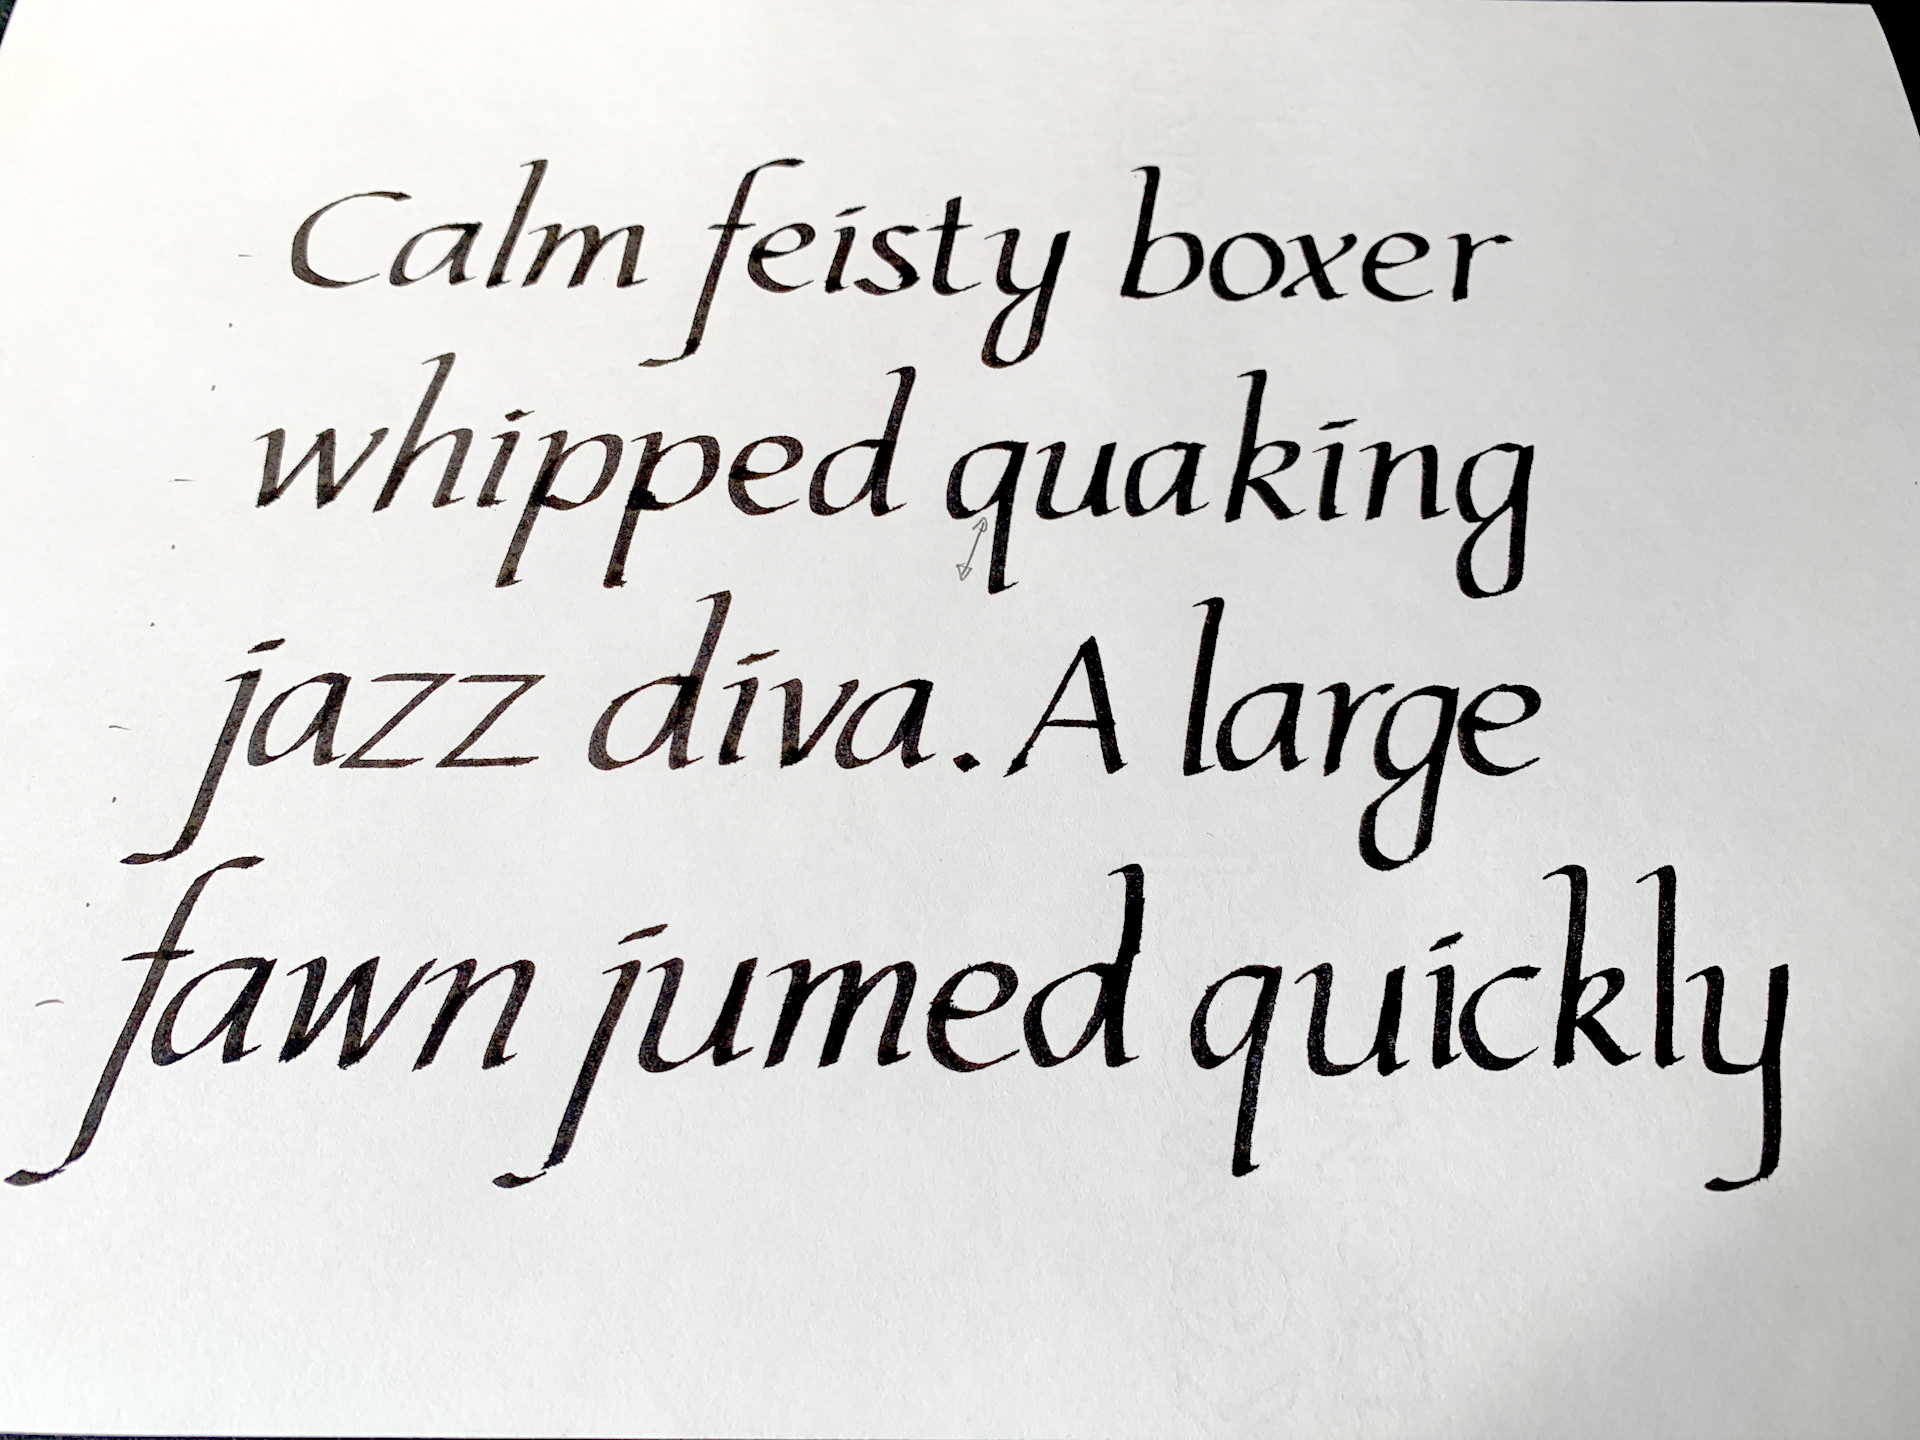 Calm feisty boxer
whipped quaking
jazz diva. A large
fawn jumed quickly